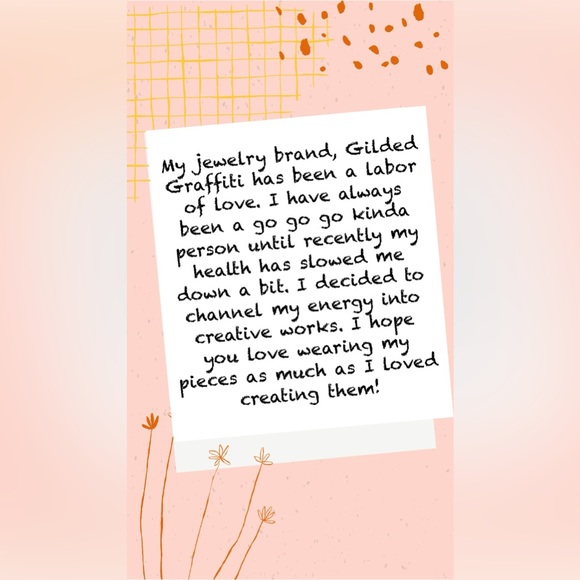 My jewelry brand, Gilded
Graffiti has been a labor
of love. I have always
been a go go go kinda
person until recently my
health has slowed me
down a bit. I decided to
channel my energy into
creative works. I hope
you love wearing my
pieces as much as I loved
creating them!